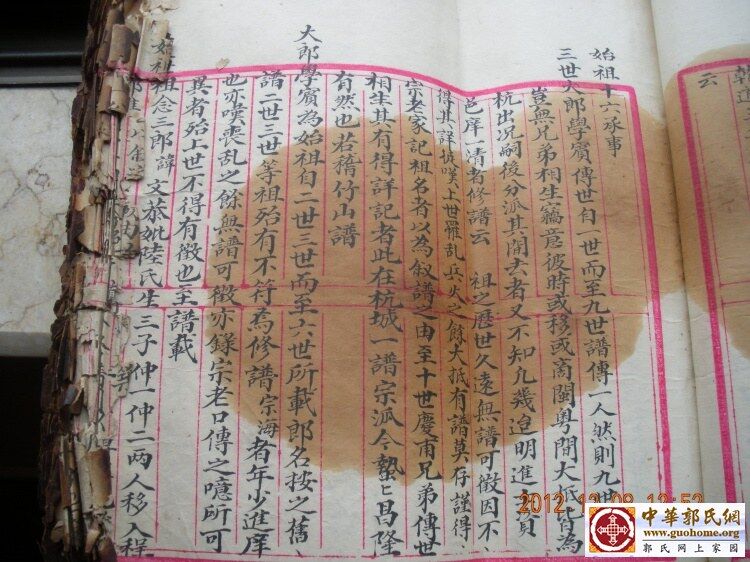 云
始祖十六承事
三世大郎學賓傳世自一世而至九世譜傳一人然則九世
豈無兄弟相生竊意彼時或移或商閩粵間大抵皆為
杭出况嗣後分派其間去者又不知凡幾迨明進貢
邑庠一清者修譜云 祖之歷世久遠無譜可徵因不
得其詳抑嘆上世罹乱兵火之餘大抵有譜莫存謹得
宗老家記祖名者以為叙譜之由至十世慶甫兄弟傳世
相生其有得詳記者此在杭城一譜宗派今蟄〻昌隆
有然也若稽竹山譜
大郎學賓為始祖自二世三世而至六世所載郎名按之舊
譜一世三世等祖殆有不符為修譜宗海者年少進庠
也亦嘆喪乱之餘無譜可徵亦錄宗老口傳之噫所可
異者殆上世不得有徵也至譜載
始祖念三郎諱文恭妣陸氏生三子仲一仲二两人移入程
2012 12 09 12:52
中華郭氏網
www.guohome.org
郭氏网上家园